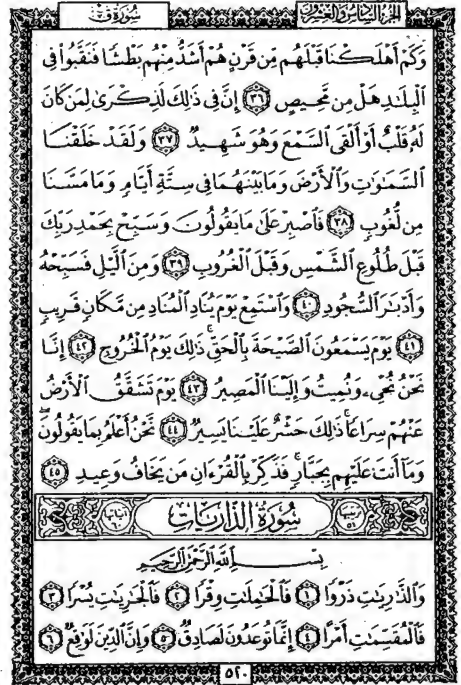 سُورَةُ قٓ
الجزء السادس والعشرون
وَكَمْ أَهْلَكْنَا قَبْلَهُم مِّن قَرْنٍ هُمْ أَشَدُّ مِنْهُم بَطْشًا فَنَقَّبُوا۟ فِى
ٱلْبِلَٰدِ هَلْ مِن مَّحِيصٍ ٣٦ إِنَّ فِى ذَٰلِكَ لَذِكْرَىٰ لِمَن كَانَ
لَهُۥ قَلْبٌ أَوْ أَلْقَى ٱلسَّمْعَ وَهُوَ شَهِيدٌ ٣٧ وَلَقَدْ خَلَقْنَا
ٱلسَّمَٰوَٰتِ وَٱلْأَرْضَ وَمَا بَيْنَهُمَا فِى سِتَّةِ أَيَّامٍ وَمَا مَسَّنَا
مِن لُّغُوبٍ ٣٨ فَٱصْبِرْ عَلَىٰ مَا يَقُولُونَ وَسَبِّحْ بِحَمْدِ رَبِّكَ
قَبْلَ طُلُوعِ ٱلشَّمْسِ وَقَبْلَ ٱلْغُرُوبِ ٣٩ وَمِنَ ٱلَّيْلِ فَسَبِّحْهُ
وَأَدْبَٰرَ ٱلسُّجُودِ ٤٠ وَٱسْتَمِعْ يَوْمَ يُنَادِ ٱلْمُنَادِ مِن مَّكَانٍ قَرِيبٍ
٤١ يَوْمَ يَسْمَعُونَ ٱلصَّيْحَةَ بِٱلْحَقِّ ۚ ذَٰلِكَ يَوْمُ ٱلْخُرُوجِ ٤٢ إِنَّا
نَحْنُ نُحْىِۦ وَنُمِيتُ وَإِلَيْنَا ٱلْمَصِيرُ ٤٣ يَوْمَ تَشَقَّقُ ٱلْأَرْضُ
عَنْهُمْ سِرَاعًا ۚ ذَٰلِكَ حَشْرٌ عَلَيْنَا يَسِيرٌ ٤٤ نَّحْنُ أَعْلَمُ بِمَا يَقُولُونَ ۖ
وَمَآ أَنتَ عَلَيْهِم بِجَبَّارٍ ۖ فَذَكِّرْ بِٱلْقُرْءَانِ مَن يَخَافُ وَعِيدِ ٤٥
ترتيبها ٥١ سُورَةُ الذَّارِيَاتِ آياتها ٦٠
بِسْمِ ٱللَّهِ ٱلرَّحْمَٰنِ ٱلرَّحِيمِ
وَٱلذَّٰرِيَٰتِ ذَرْوًا ١ فَٱلْحَٰمِلَٰتِ وِقْرًا ٢ فَٱلْجَٰرِيَٰتِ يُسْرًا ٣
فَٱلْمُقَسِّمَٰتِ أَمْرًا ٤ إِنَّمَا تُوعَدُونَ لَصَادِقٌ ٥ وَإِنَّ ٱلدِّينَ لَوَٰقِعٌ ٦
٥٢٠